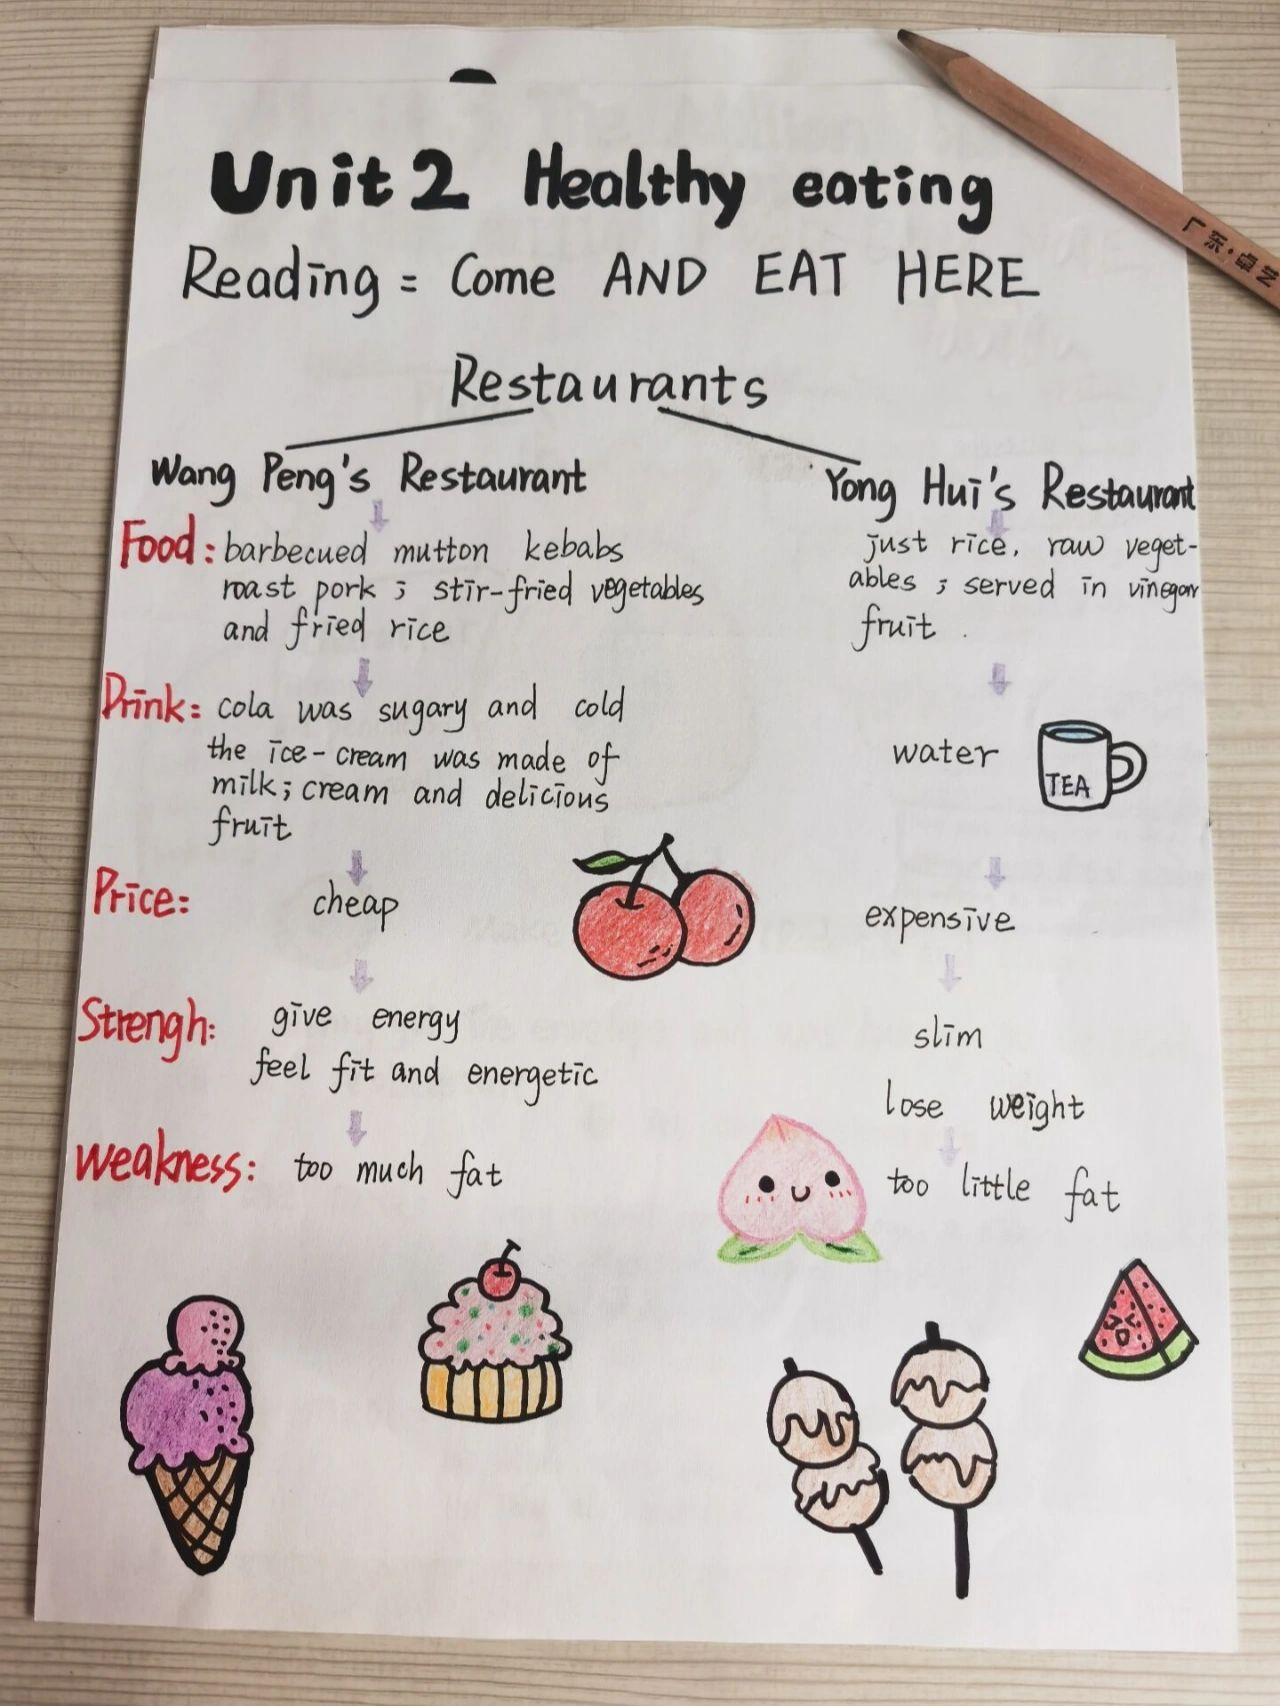 Unit 2 Healthy eating
Reading = Come AND EAT HERE
Restaurants
Wang Peng's Restaurant
Yong Hui's Restaurant
Food: barbecued mutton kebabs
roast pork ; stir-fried vegetables
and fried rice
just rice, raw veget-
ables ; served in vinegar
fruit .
Drink: cola was sugary and cold
the ice-cream was made of
milk; cream and delicious
fruit
water
TEA
Price: cheap
expensive
Strengh: give energy
feel fit and energetic
slim
lose weight
weakness: too much fat
too little fat
广东·卓艺